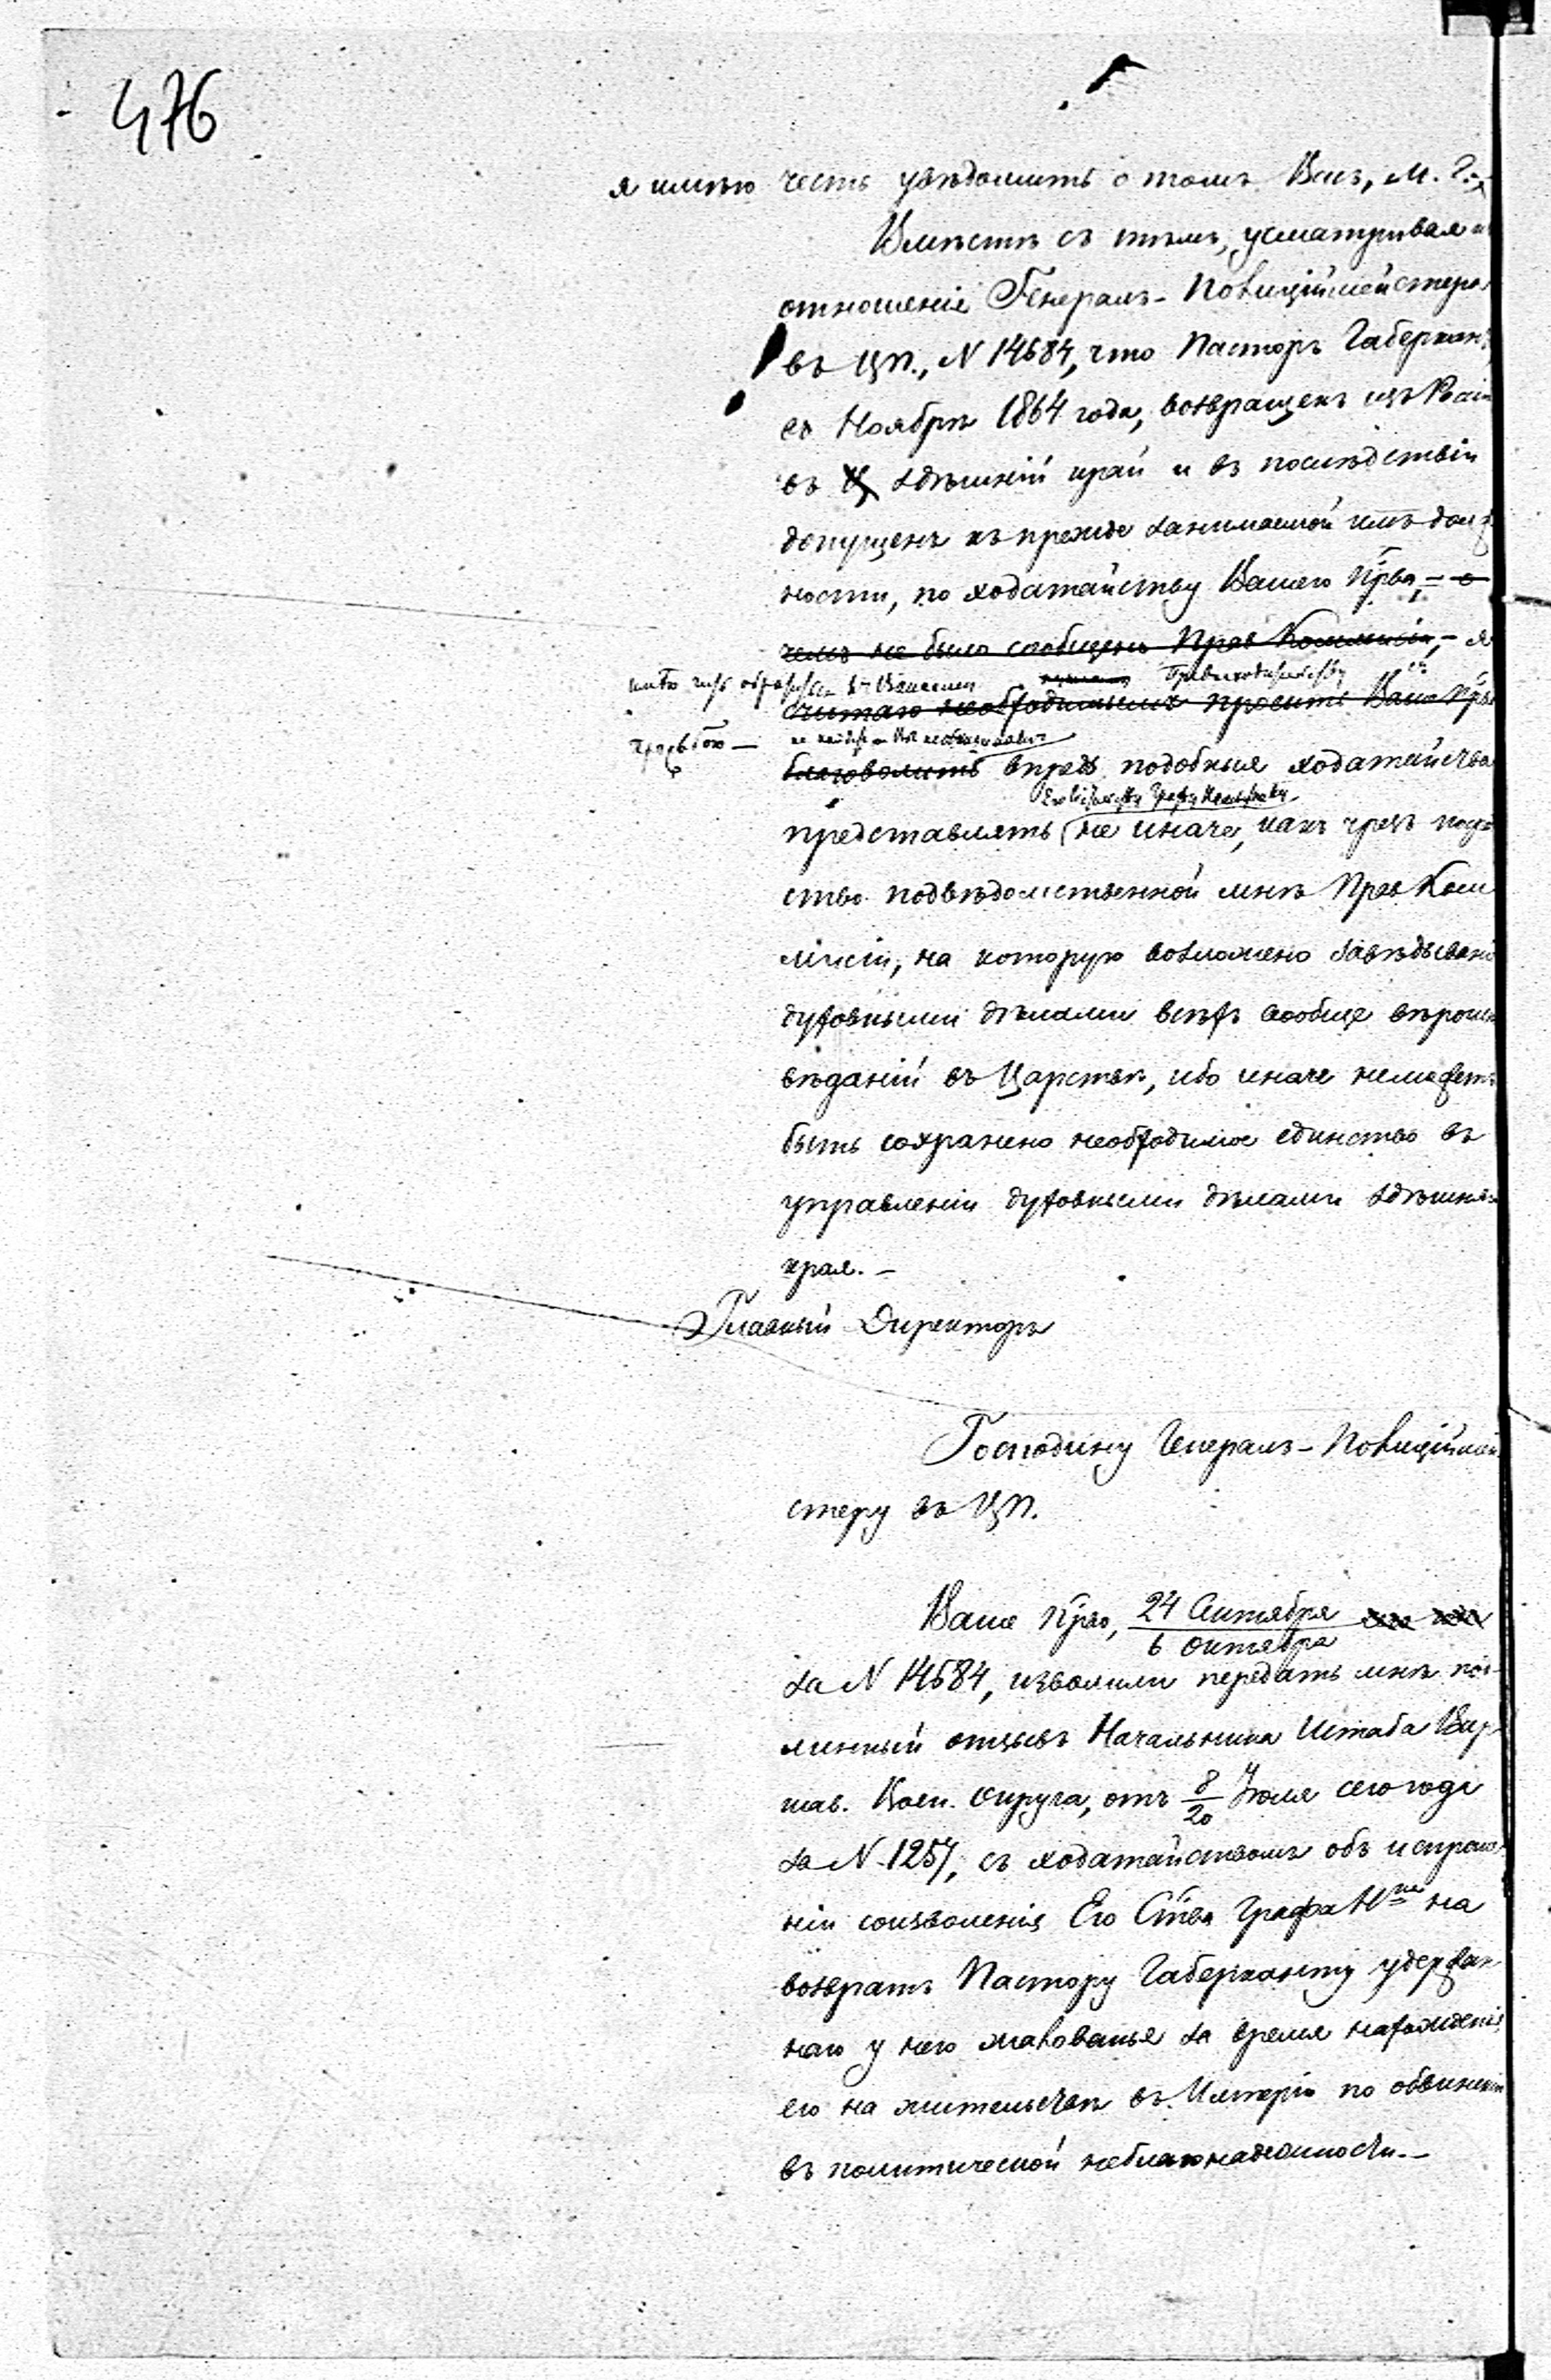 476
я имѣю честь увѣдомить о томъ Васъ, М. Г.
Вмѣстѣ съ тѣмъ, усматривая изъ
отношенія Генералъ-Полиціймейстера
въ ЦП., N 14684, что Пасторъ Габеркантъ,
въ Ноябрѣ 1864 года, возвращенъ изъ
въ здѣшній край и въ послѣдствіи
допущенъ къ прежде занимаемой имъ долж
ности, по ходатайству Вашего Пр̃ва, – о
чемъ не было сообщено Прав Коммисіи, – я
имѣю честь обратиться къ Вашему Превосходительству
считаю необходимымъ просить Ваше Пр̃во
просьбою – не найдете ли Вы необходимымъ
благоволить впредь подобныя ходатайства
Его Сіятельству Графу Намѣстнику
представлять не иначе, какъ чрезъ посред
ство подвѣдомственной мнѣ Прав Ком
мисіи, на которую возложено завѣдываніе
духовными дѣлами всѣхъ вообще вѣроис
вѣданій въ Царствѣ, ибо иначе неможетъ
быть сохранено необходимое единство въ
управленіи духовными дѣлами здѣшняго
края. –
Главный Директоръ
Господину Генералъ-Полиціймей
стеру въ ЦП.
Ваше Пр̃во, 24 Сентября
6 Октября
за N 14684, изволили передать мнѣ под
линный отзывъ Начальника Штаба Вар
шав. Воен. Округа, отъ 8/20 Іюля сего года
за N 1257, съ ходатайствомъ объ испроше
ніи соизволенія Его Ст̃ва Графа Н на
возвратъ Пастору Габерканту удержан
наго у него жалованья за время нахожденія
его на жительствѣ въ Имперіи по обвиненію
въ политической неблагонадежности. –